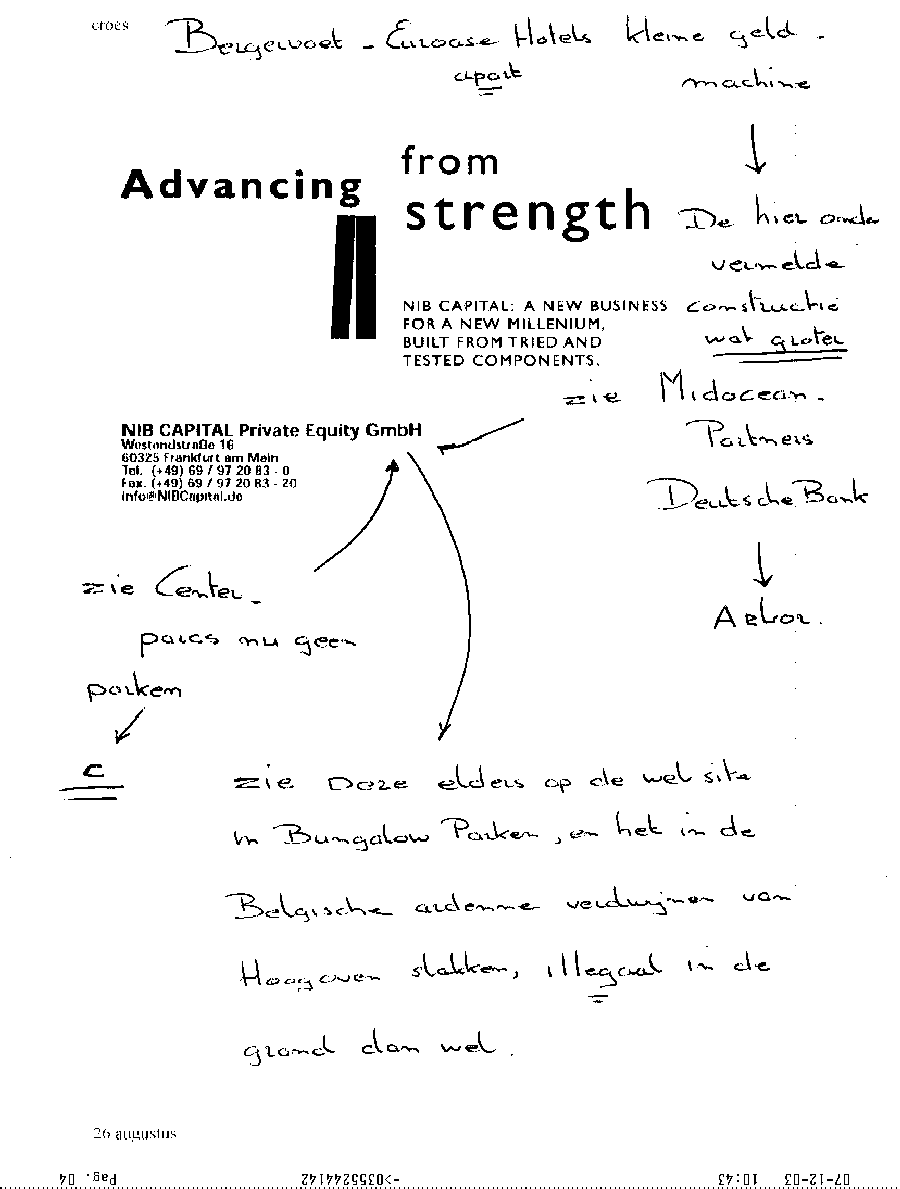 croes
Bergevoet - Euroase Hotels kleine geld -
apart machine
Advancing from
strength
De hier onder
vermelde
constructie
wat groter
NIB CAPITAL: A NEW BUSINESS
FOR A NEW MILLENIUM,
BUILT FROM TRIED AND
TESTED COMPONENTS.
zie Midocean -
Partners
Deutsche Bank
NIB CAPITAL Private Equity GmbH
Westendstraße 16
60325 Frankfurt am Main
Tel. (+49) 69 / 97 20 83 - 0
Fax. (+49) 69 / 97 20 83 - 20
info@NIBCapital.de
zie Center -
parcs nu geen
parken
C
zie Doze elders op de web site
in Bungalow Parken, en het in de
Belgische ardenne verdwijnen van
Hoogoven slakken, illegaal in de
grond dan wel.
26 augustus
07-12-03 10:43 ->0355244142 Pag. 04